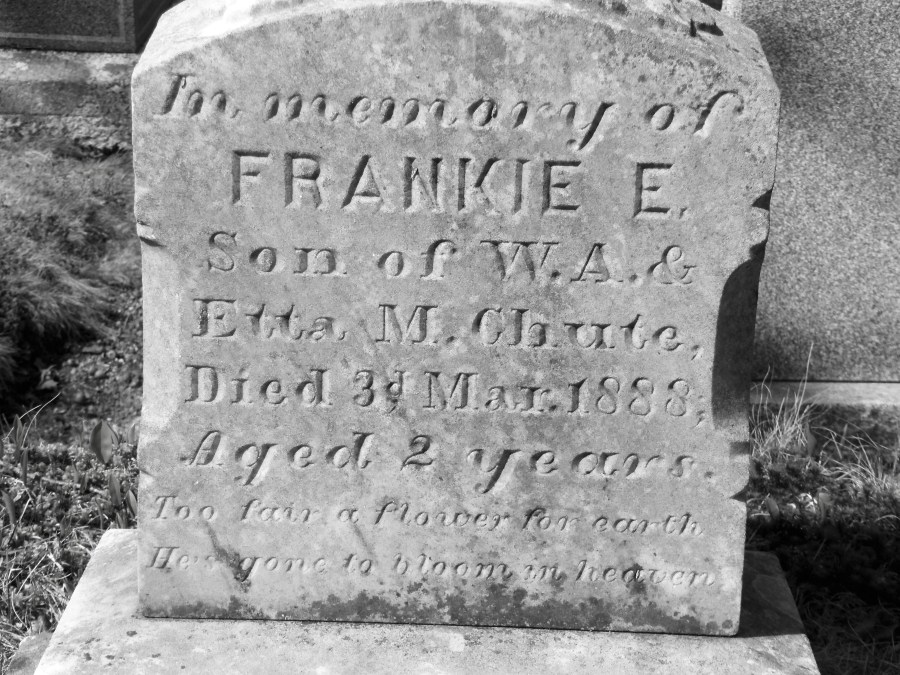 In memory of
FRANKIE E.
Son of W.A. &
Etta M. Chute,
Died 3d Mar. 1888;
Aged 2 years.
Too fair a flower for earth
He's gone to bloom in heaven